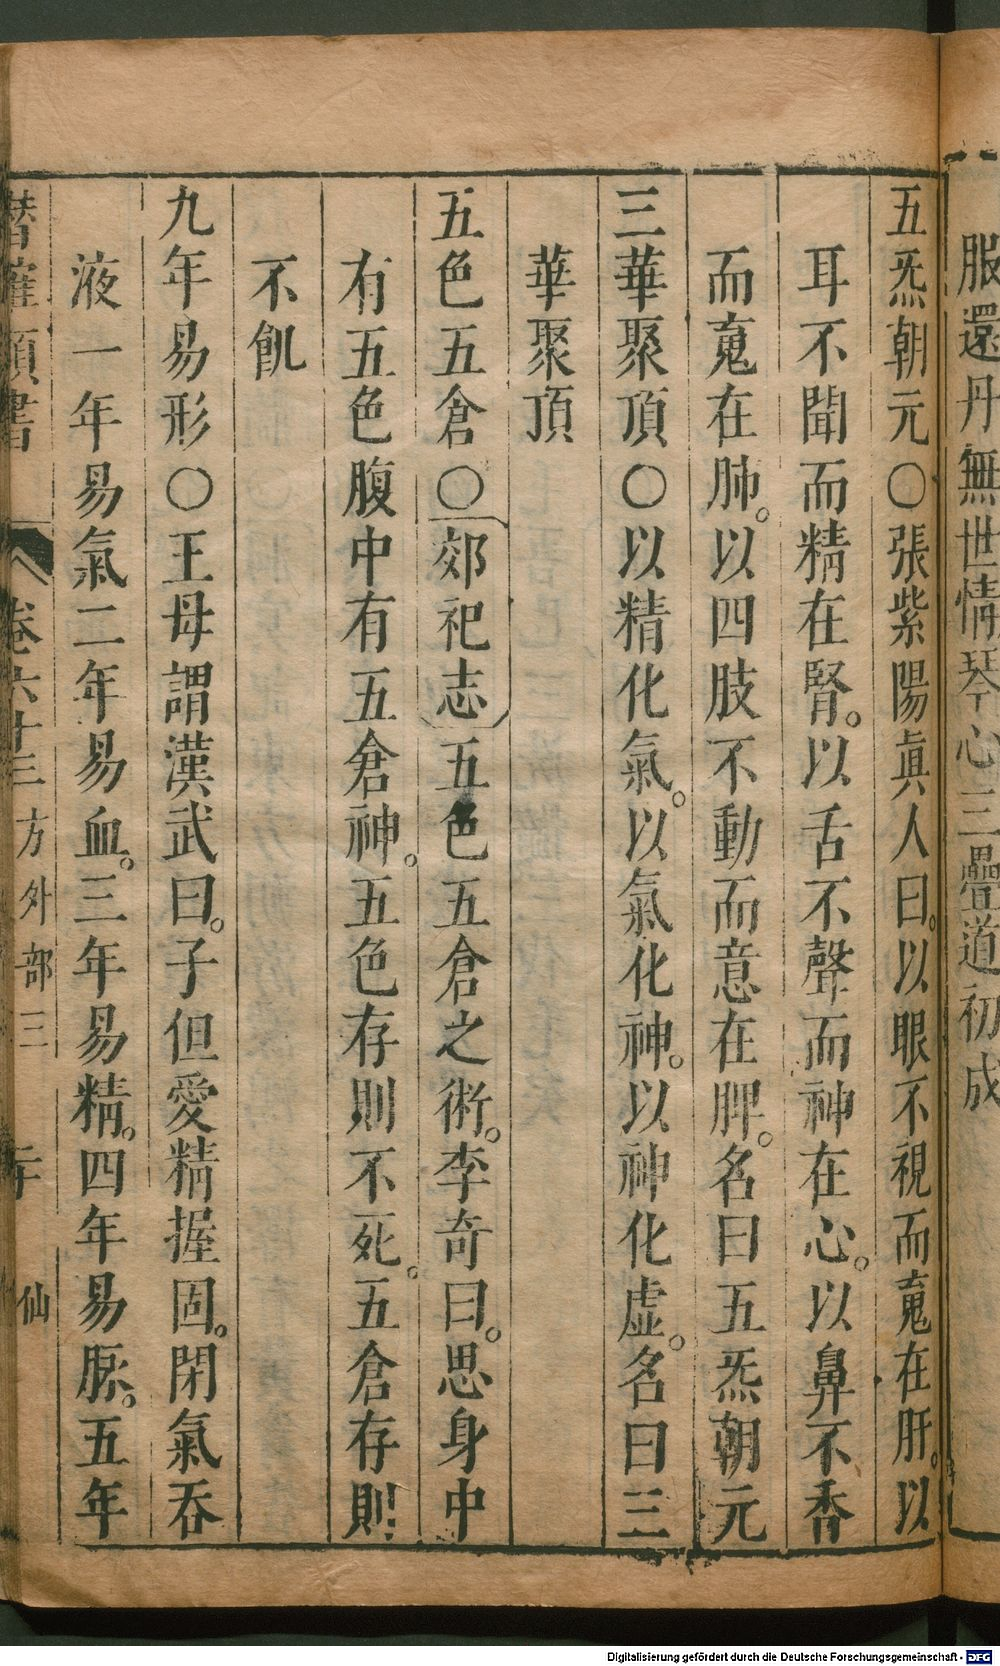 服還丹無世情琴心三疊道初成
五炁朝元○張紫陽眞人曰。以眼不視而䰟在肝。以
耳不聞而精在腎。以舌不聲而神在心。以鼻不香
而䰟在肺。以四肢不動而意在脾。名曰五炁朝元
三華聚頂○以精化氣。以氣化神。以神化虛。名曰三
華聚頂
五色五倉○郊祀志五色五倉之術。李奇曰。思身中
有五色腹中有五倉神。五色存則不死。五倉存則
不飢
九年易形○王母謂漢武曰。子但愛精握固。閉氣吞
液一年易氣二年易血。三年易精。四年易脈。五年
潛確類書 卷六十三 方外部三 二十 仙
Digitalisierung gefördert durch die Deutsche Forschungsgemeinschaft - DFG